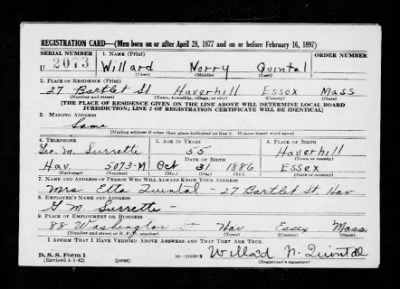 REGISTRATION CARD—(Men born on or after April 28, 1877 and on or before February 16, 1897)
SERIAL NUMBER 1. NAME (Print) ORDER NUMBER
U 2073 Willard Norry Quintal
(First) (Middle) (Last)
2. PLACE OF RESIDENCE (Print)
27 Bartlet St Haverhill Essex Mass
(Number and street) (Town, township, village, or city) (County) (State)
[THE PLACE OF RESIDENCE GIVEN ON THE LINE ABOVE WILL DETERMINE LOCAL BOARD
JURISDICTION; LINE 2 OF REGISTRATION CERTIFICATE WILL BE IDENTICAL]
3. MAILING ADDRESS
Same
[Mailing address if other than place indicated on line 2. If same insert word same]
4. TELEPHONE 5. AGE IN YEARS 6. PLACE OF BIRTH
Geo. M. Surrette 55 Haverhill
DATE OF BIRTH (Town or county)
Hav. 5073-M Oct 31 1886 Essex
(Mo.) (Day) (Yr.) (State or country)
7. NAME AND ADDRESS OF PERSON WHO WILL ALWAYS KNOW YOUR ADDRESS
Mrs Etta Quintal - 27 Bartlet St. Hav
8. EMPLOYER'S NAME AND ADDRESS
G. M. Surrette -
9. PLACE OF EMPLOYMENT OR BUSINESS
88 Washington St Hav Essex Mass
(Number and street or R. F. D. number) (Town) (County) (State)
I AFFIRM THAT I HAVE VERIFIED ABOVE ANSWERS AND THAT THEY ARE TRUE.
D. S. S. Form 1 Willard N. Quintal
(Revised 4-1-42) (Registrant's signature)